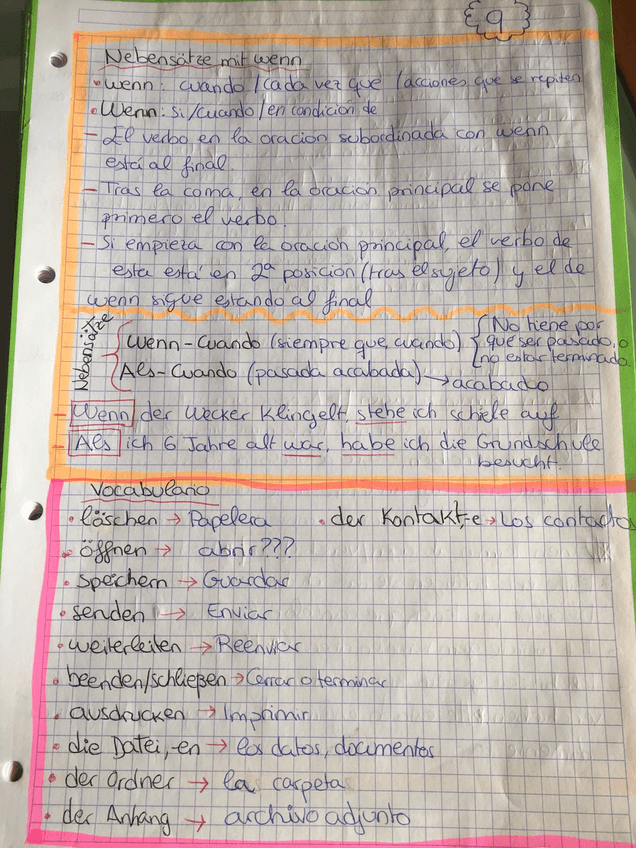 9
Nebensätze mit wenn
• wenn: cuando / cada vez que / acciones que se repiten
• Wenn: si/cuando/en condicion de
- El verbo en la oracion subordinada con wenn
está al final.
- Tras la coma, en la oración principal se pone
primero el verbo.
- Si empieza con la oración principal, el verbo de
esta está en 2ª posicion (tras el sujeto) y el de
wenn sigue estando al final
Nebensätze
Wenn - Cuando (siempre que, cuando)
No tiene por
que ser pasado, o
no estar terminada.
Als - Cuando (pasada acabada) → acabado
- Wenn der Wecker klingelt, stehe ich schiele auf
- Als ich 6 Jahre alt war, habe ich die Grundschule
besucht.
Vocabulario
• löschen → Papelera
• der Kontakt,-e → Los contactos
• öffnen → abrir???
• speichern → Guardar
• senden → Enviar
• weiterleiten → Reenviar
• beenden/schließen → Cerrar o terminar
• ausdrucken → Imprimir
• die Datei,-en → los datos, documentos
• der Ordner → la carpeta
• der Anhang → archivo adjunto